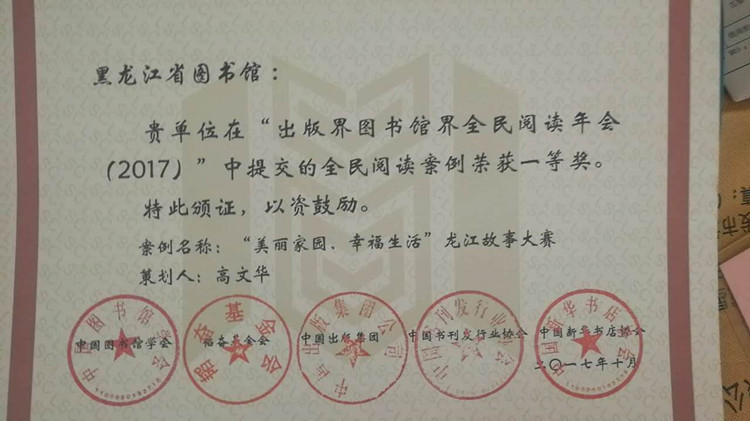 黑龙江省图书馆：
贵单位在“出版界图书馆界全民阅读年会
（2017）”中提交的全民阅读案例荣获一等奖。
特此颁证，以资鼓励。
案例名称：“美丽家园、幸福生活”龙江故事大赛
策划人：高文华
中国图书馆学会 韬奋基金会 中国出版集团 中国书刊发行业协会 中国新华书店协会
二〇一七年十月